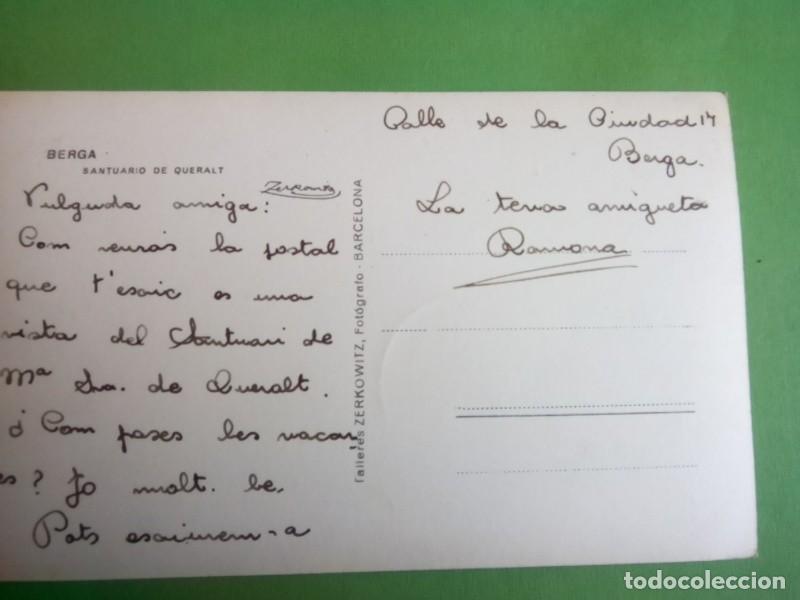 BERGA
SANTUARIO DE QUERALT
Zerkowitz
Vulguda amiga:
Com veuras la postal
que t'esric es una
vista del Santuari de
Mª Sra. de Queralt.
¿ Com pases les vacan
es? Jo molt. be.
Pots escriurem-a
Talleres ZERKOWITZ, Fotógrafo - BARCELONA
Calle de la Ciudad 17
Berga.
La teva amigueta
Ramona
todocoleccion